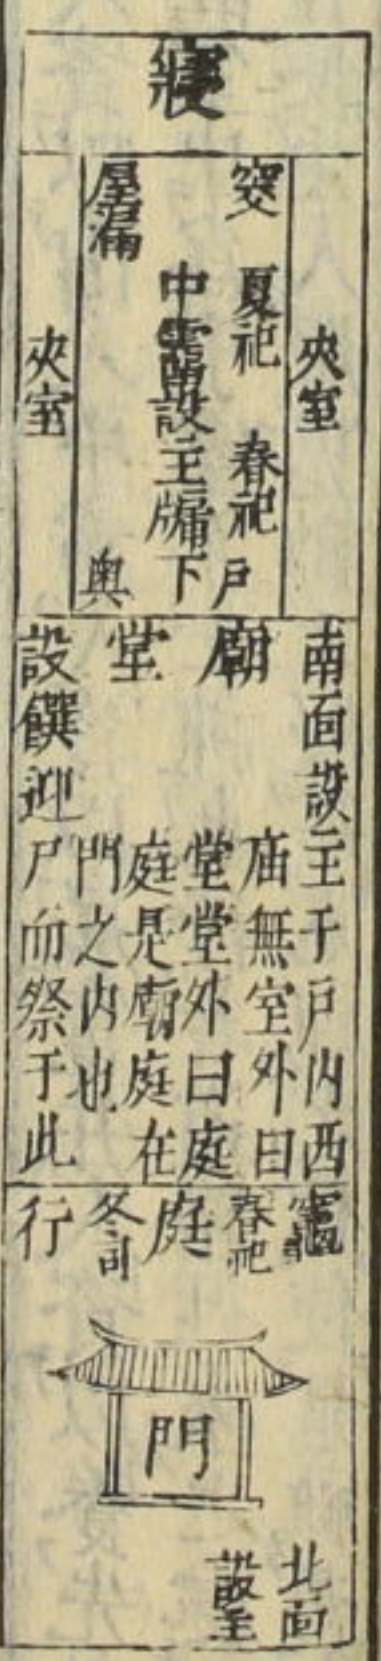 寢
夾室
窔 夏祀 春祀 戶
中霤設主牖下
屋漏 奧
夾室
廟堂
南面設主于戶内西
庙無室外曰
堂堂外曰庭
庭是廟庭在
門之内也
設饌迎尸而祭于此
竈
春祀
庭
行
門
北面
設主